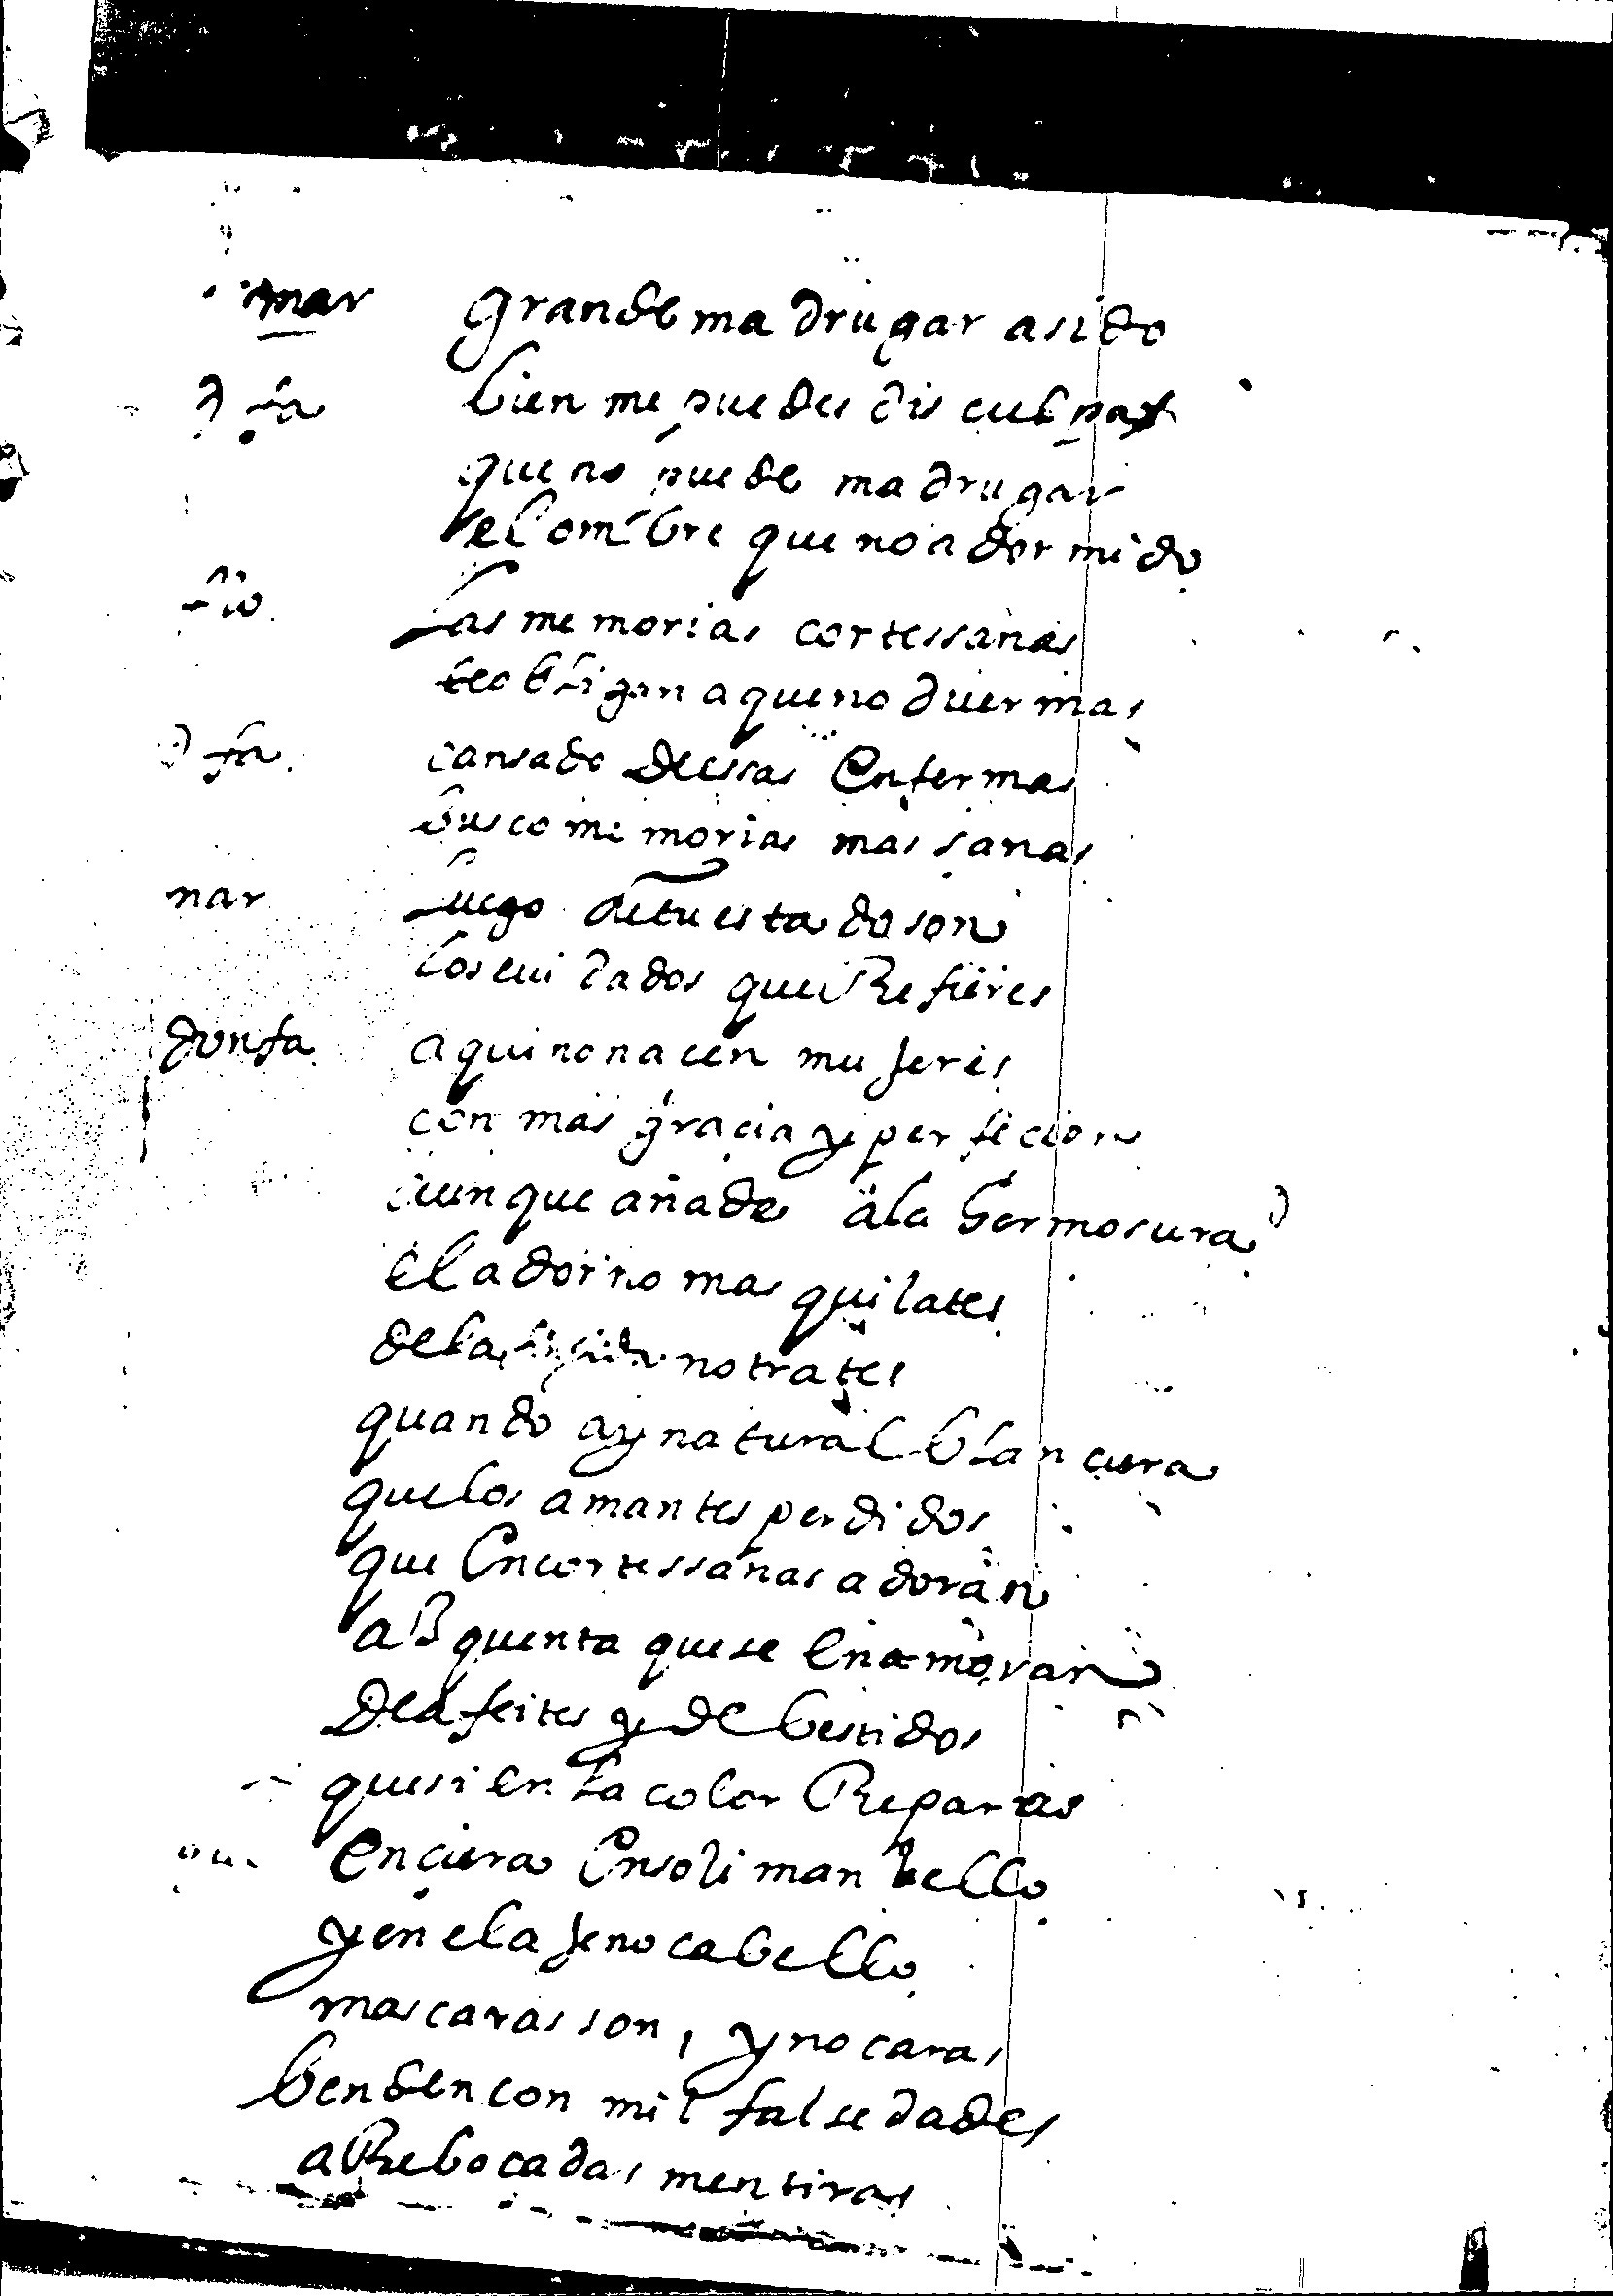 mar grande madrugar a sido
d fa bien me puedes disculpar
que no puede madrugar
el ombre que no a dormido
las memorias cortessanas
te obligan a que no duermas
d fa cansado de essas enfermas
busco memorias mas sanas
mar luego de tu estado son
los cuidados que Refieres
don fa aqui no nacen mujeres
con mas gracia y perfecion
aunque añade a la hermosura
el adorno mas quilates
de la no trates
quando ay natural blancura
que los amantes perdidos
que en cortessanas adoran
as quenta que se enamoran
de afeites y de bestidos
que si en la color Reparas
encima en soliman bello
y en el ajeno cabello
mascaras son, y no caras
benden con mil falsedades
a Rebocadas mentiras